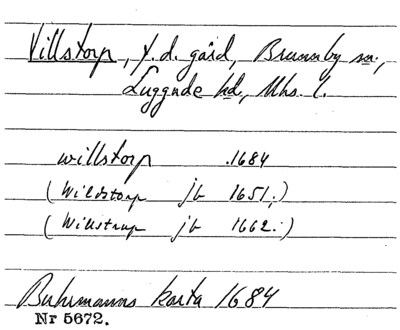 Villstorp, f.d. gård, Brunnby sn.,
Luggude hd, Mhs. l.
willstorp .1684
(Willdstorp jb 1651;)
(Willstrup jb 1662.)
Buhrmanns karta 1684
Nr 5672.